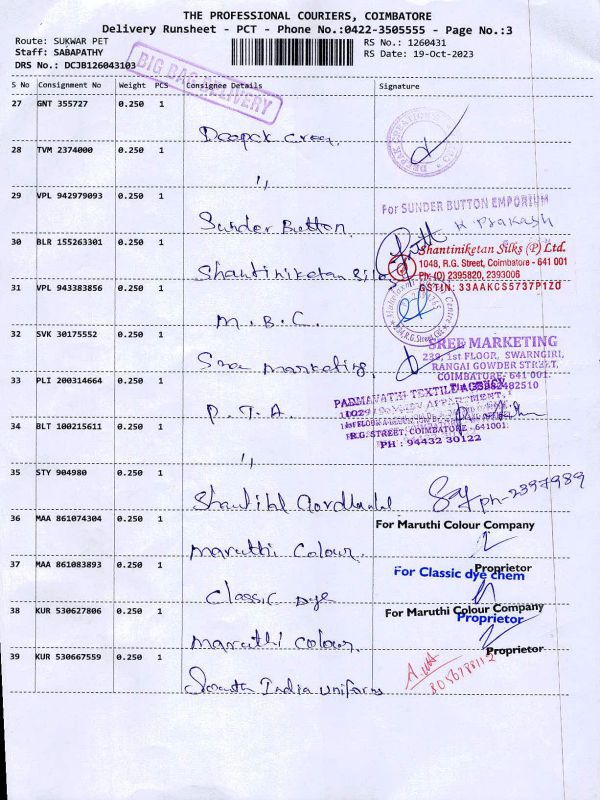 THE PROFESSIONAL COURIERS, COIMBATORE
Delivery Runsheet - PCT - Phone No.:0422-3505555 - Page No.:3
Route: SUKWAR PET
RS No.: 1260431
Staff: SABAPATHY
RS Date: 19-Oct-2023
DRS No.: DCJB126043103
BIG BAG DELIVERY
S No Consignment No Weight PCS Consignee Details Signature
27 GNT 355727 0.250 1
Deepak Creen,
28 TVM 2374000 0.250 1
"
29 VPL 942979093 0.250 1
For SUNDER BUTTON EMPORIUM
Sunder Button,
K Prakash
30 BLR 155263301 0.250 1
Shantiniketan Silks (P) Ltd.
1048, R.G. Street, Coimbatore - 641 001
Shantiniketan Silks
Ph: (O) 2395820, 2393006
GSTIN: 33AAKCS5737P1ZO
31 VPL 943383856 0.250 1
M.B.C.
32 SVK 30175552 0.250 1
SREE MARKETING
239, 1st FLOOR, SWARNGIRI,
RANGAI GOWDER STREET,
Sree Marketing,
COIMBATORE- 641 001.
33 PLI 200314664 0.250 1
PADMAVATHI TEXTILE AGENCY
P.T.A.
34 BLT 100215611 0.250 1
R.G. STREET, COIMBATORE - 641001.
PH : 94432 30122
"
35 STY 904980 0.250 1
Shantilal Gordhanlal
ph-2397989
36 MAA 861074304 0.250 1
For Maruthi Colour Company
Maruthi Colour,
37 MAA 861083893 0.250 1
Proprietor
For Classic dye chem
Classic Dye
38 KUR 530627806 0.250 1
For Maruthi Colour Company
Proprietor
Maruthi Colour,
Proprietor
39 KUR 530667559 0.250 1
South India Uniforms